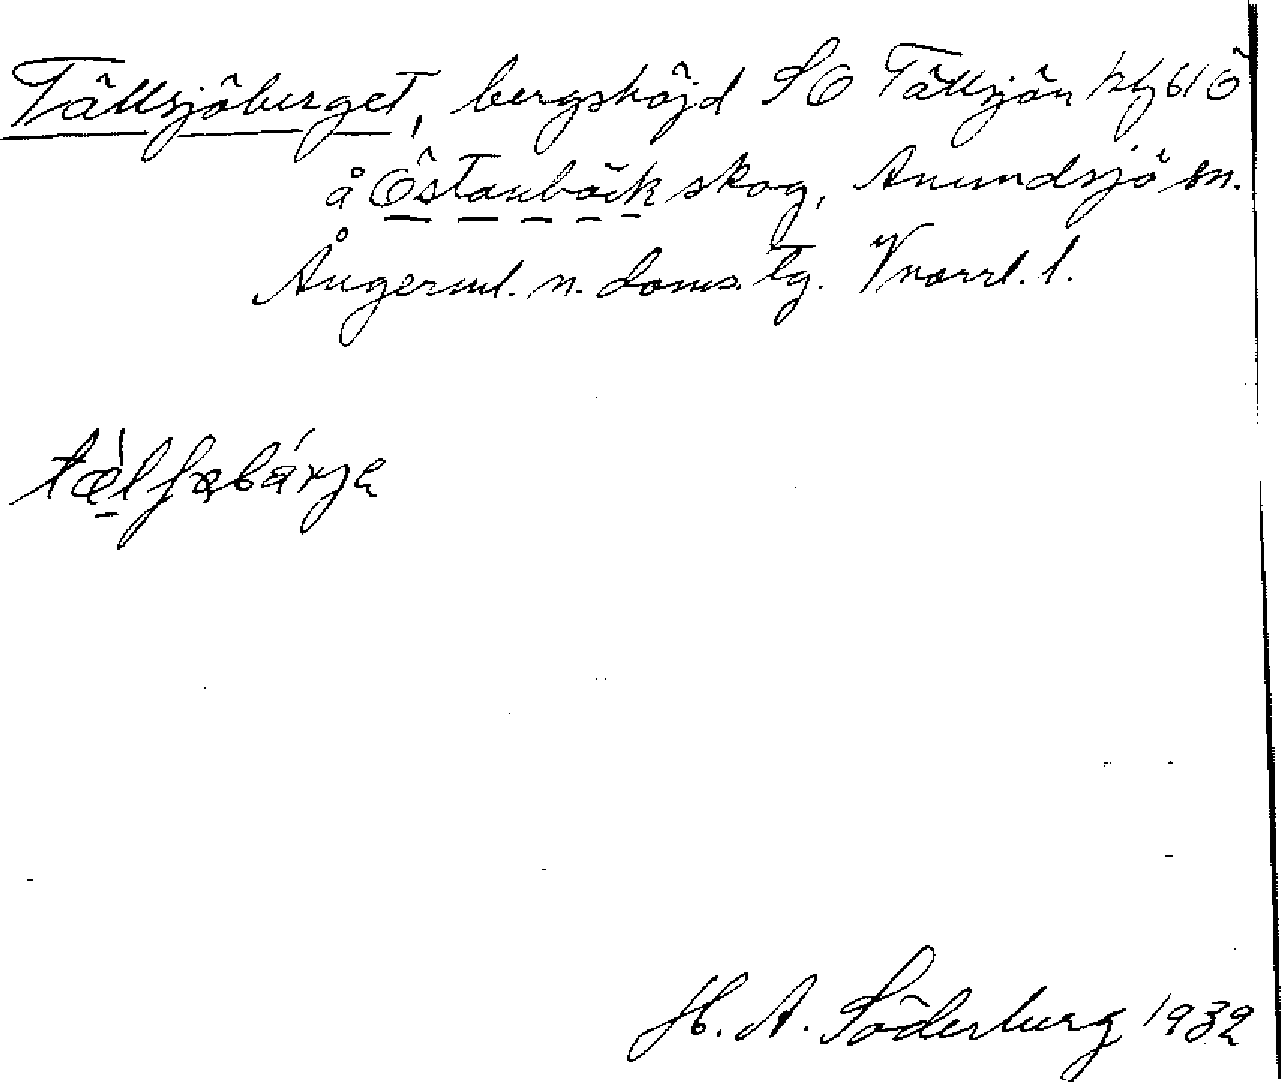 Tällsjöberget, bergshöjd SO Tällsjön kbl 61 Ö
å Östanbäck skog, Anundsjö sn.
Ångerml. n. doms. tg. Vnorrl. l.
tæ̀lʃəbárjə
H. A. Söderberg 1932